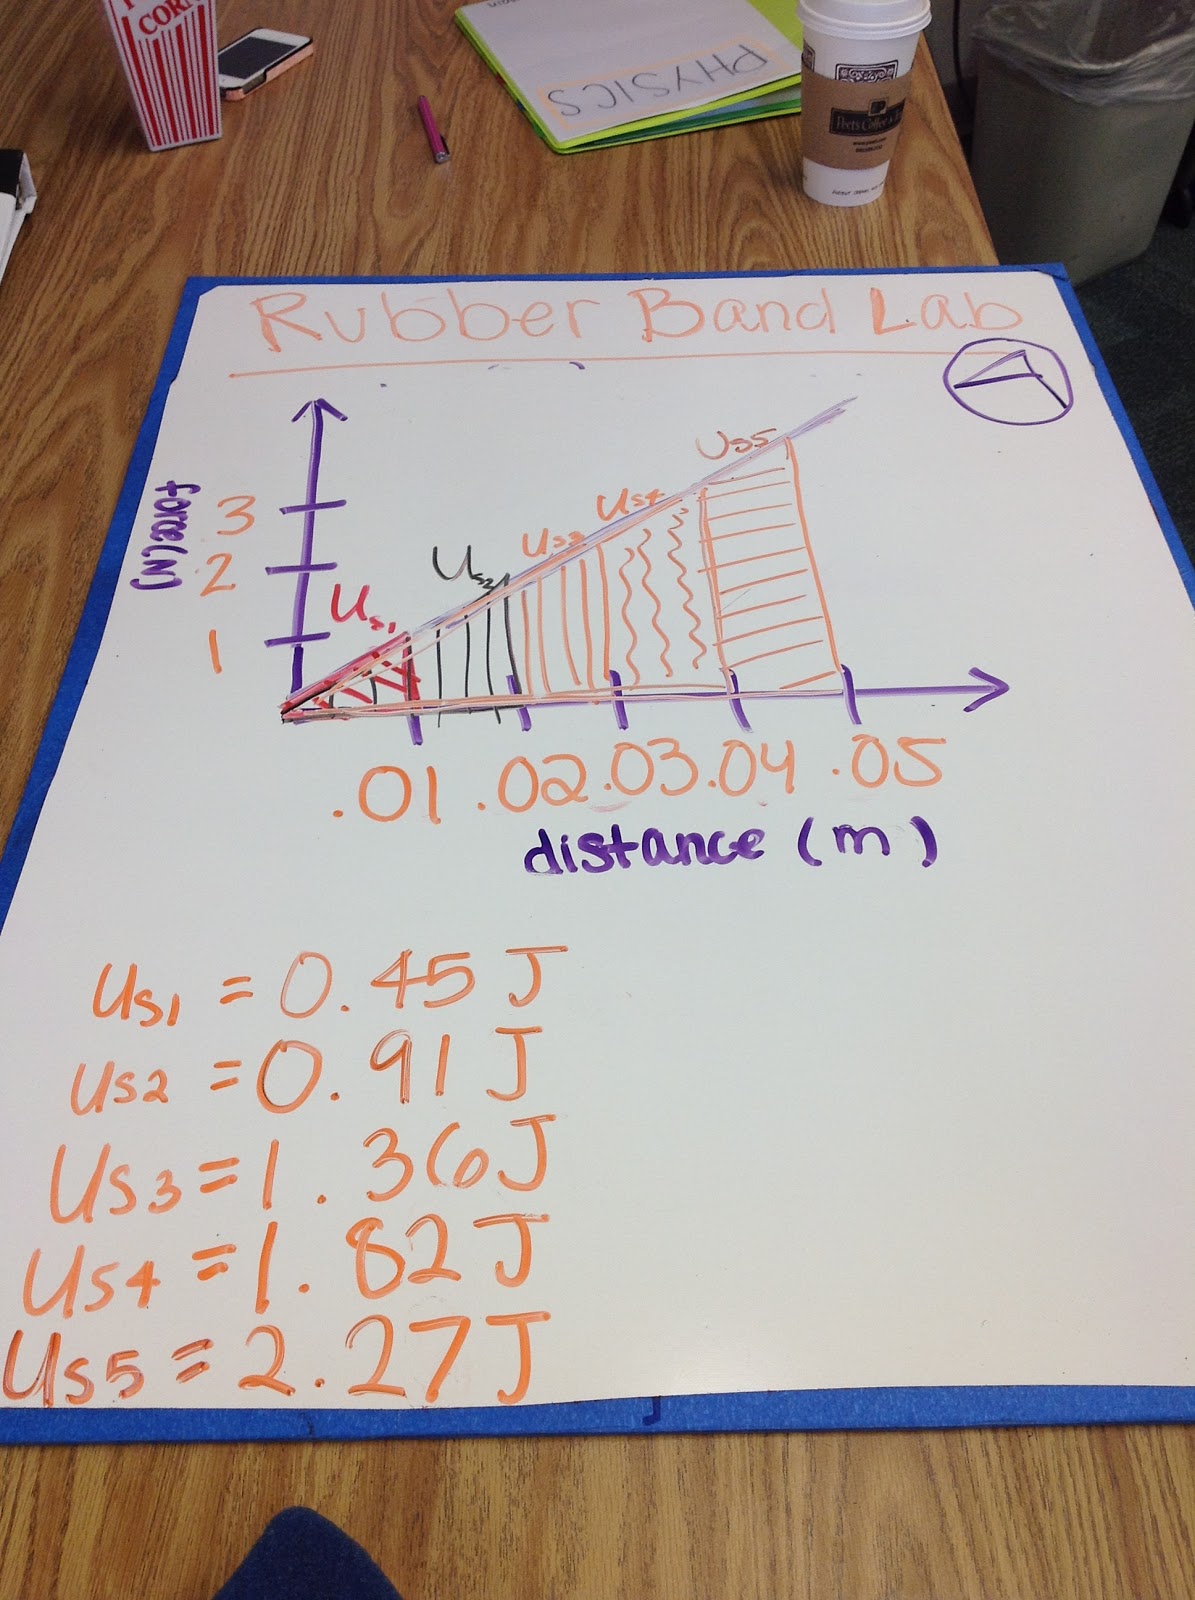 CORN
PHYSICS
Peet's Coffee & Tea
Rubber Band Lab
force(N)
3
2
1
Us1
Us2
Us3
Us4
Us5
.01 .02 .03 .04 .05
distance (m)
Us1 = 0.45 J
Us2 = 0.91 J
Us3 = 1.36J
Us4 = 1.82J
Us5 = 2.27J